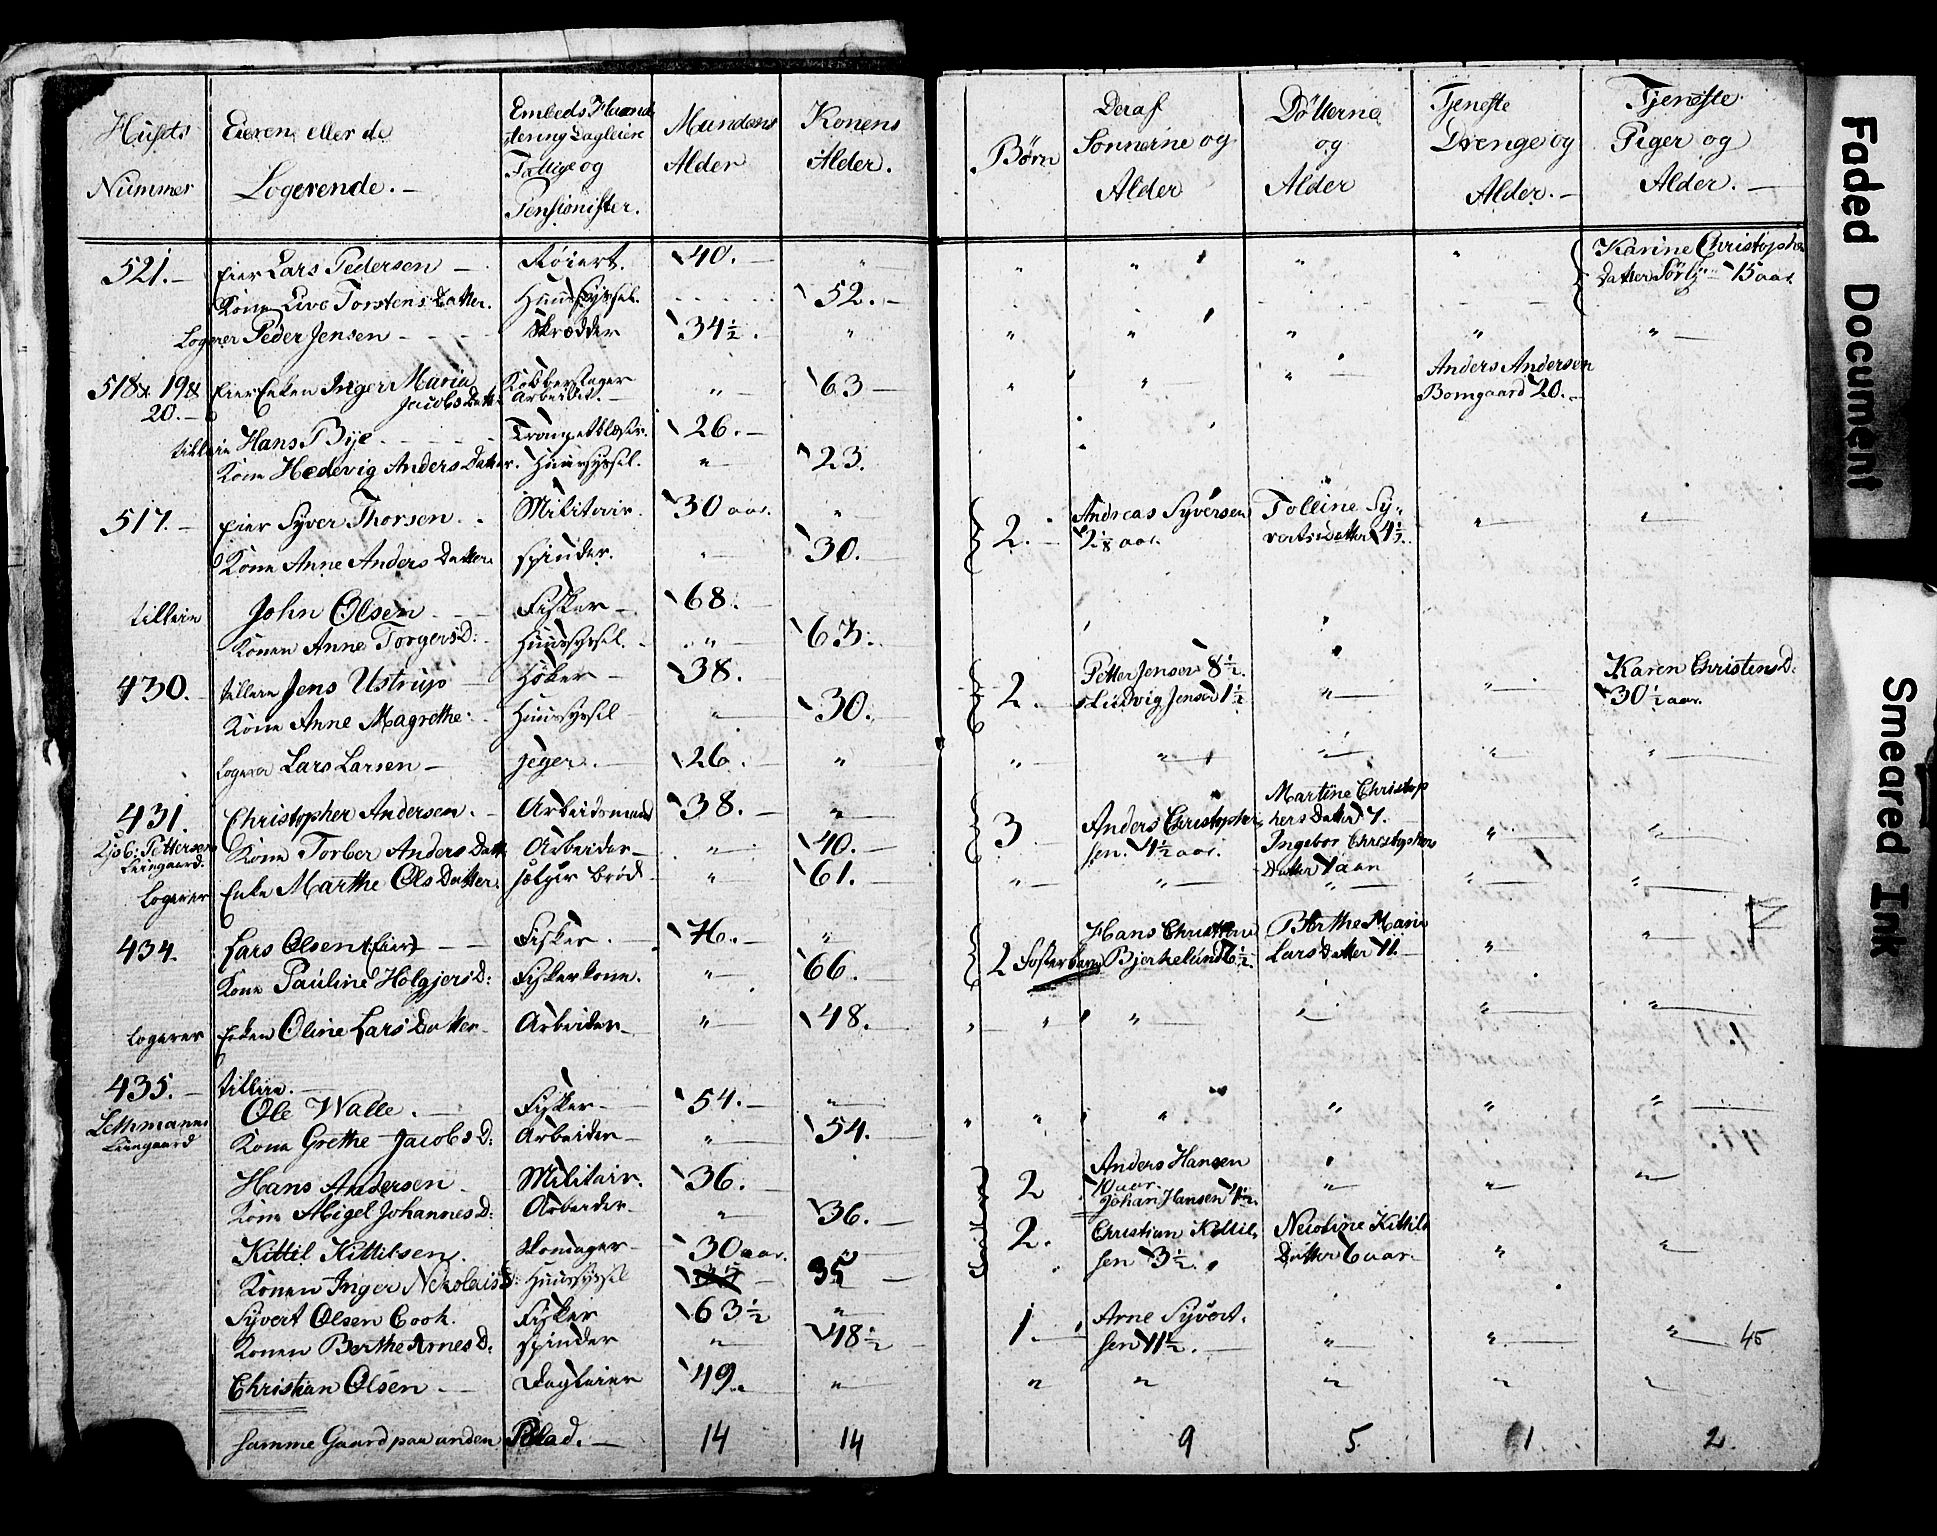 Husets Nummer | Eieren eller de Logerende. — | Embeds Haandtering Dagleiere Fattige og Pensionister. | Mandens Alder | Konens Alder. | Børn | Deraf Sønnerne og Alder | Døtterne og Alder | Tjeneste Drenge og Alder. — | Tjeneste Piger og Alder. —
521. — | Eier Lars Pedersen — | 40. | " | " | " | " | " | Karine Christopher
Kone Live Torstens Datter. | Huussyssel. | 52. — | Datter Sørby — 15 aar.
Logerer Peder Jensen — | Skrædder | 34½. | " | " | " | " | " | " —
518 & 19 & | Eier Enken Inger Maria | " — | 63 — | " | " — | " | Anders Andersen
20. — | Jacobs Datter | Arbeidet. — | Bomgaard 20. —
tilleie Hans Bye. — | Trompetblæser. | 26. —
Kone Hedevig Anders Datter. | Huussyssel. | " | 23.
517. — | Eier Syver Thorsen. — | Militair. | 30 aar. | " | 2. — | Andreas Syversen | Tolline Sy-
2⅛ aar. | vertsdatter 4½.
Kone Anne Anders Datter | Spinder. | " | 30.
tilleie John Olsen — | Fisker — | 68. —
Konen Anne Torgers D: | Huussyssel. — | " — | 63. —
430. — | tilleie Jens Ustrup — | Höker — | 38. | 2. | Petter Jensen 8½. | " — | " — | Karen Christens D.
Kone Anne Magrethe. | Huussyssel — | " | 30. | Ludvig Jensen 1½ | 30½ aar.
Logerer Lars Larsen — | Jeger. — | 26. | " | " — | " — | " — | " — | " —
431. | Christopher Andersen. — | Arbeidsmand | 38. — | " | 3 | Anders Christopher | Martine Christop
sen. 1½ aar. | hers Datter 7.
Pettersens Leiegaard. | Kone Torber Anders Datt | Arbeider — | " — | 40. — | Ingebor Christophers
Datter 1 aar
Logerer Enke Marthe Ols Datter. | sælger brød. | " | 61. — | " — | " — | " — | " — | " —
434. | Lars Olsen (Eier) — | Fisker. — | 76. — | " | 2 Fosterbarn | Hans Christian | Berthe Marie
Bjerkelund 6½. | Lars Datter 11. —
Kone Pauline Holgjers D: | Fiskerkone. | " — | 66. —
Logerer Enken Oline Lars Datter — | Arbeider — | " — | 48. — | " | " — | " — | " — | " —
435. — | tilleie. —
Ole Walle. — | Fisker — | 54. — | " — | " | " | " | " | " —
Leiegaard | Kone Grethe Jacobs D: | Arbeider — | " | 54. —
Hans Andersen — | Militair. | 36. — | 2 | Anders Hansen
10 aar. | " | " | " —
Kone Abigel Johannes D: | Arbeider — | " | 36. — | Johan Hansen 4½.
Kittil Kittilsen. — | Skomager — | 30 aar. | " | 2. | Christian Kittil- | Nicoline Kittils
sen 3½. | Datter 6 aar. | " | "
Konen Inger Nekolais D: | Huussyssel | 35 —
Syvert Olsen Cook. | Fisker | 63½ | " — | 1. — | Arne Syvert-
sen 11½. — | " | " — | " — | 45
Konen Berthe Arnes D. | Spinder | " — | 48½
Christian Olsen — | Dagleier | 49. | " — | " | " | " — | " — | " —
samme Gaard paa anden Blad. — | 14 | 14 | 9 | 5 | 1 | 2.
Faded Document
Smeared Ink